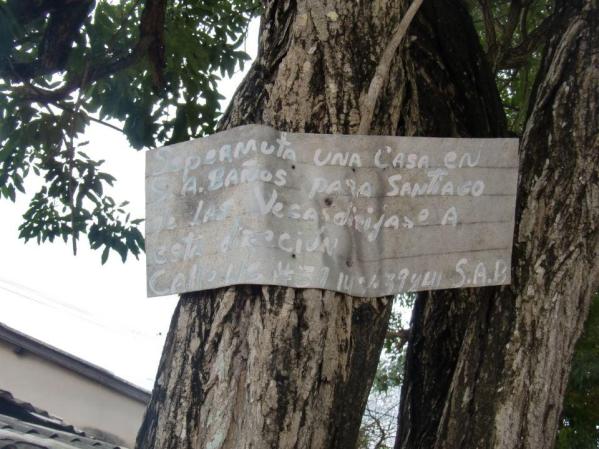 Sepermuta UNA Casa en
S.A. BAÑOS para Santiago
de las Vegas dirijase A
esta dirección
Calle 146 # 3914 % 39 y 41 S.A.B